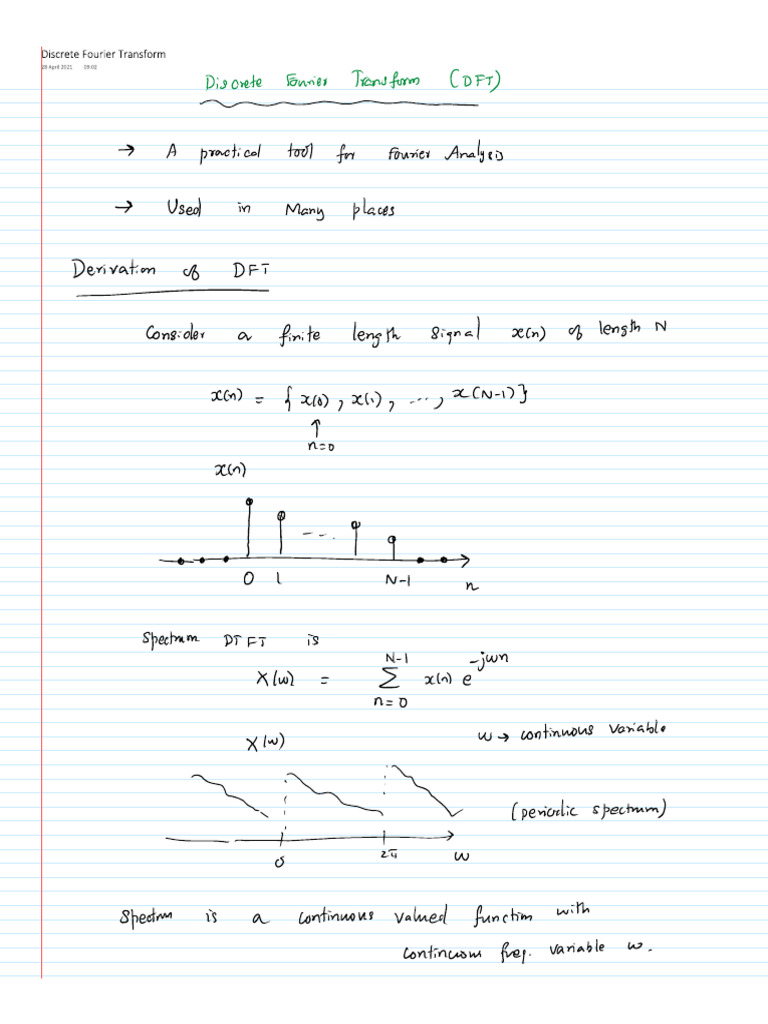 Discrete Fourier Transform
28 April 2021 09:02
Discrete Fourier Transform (DFT)
→ A practical tool for Fourier Analysis
→ Used in Many places
Derivation of DFT
Consider a finite length signal x(n) of length N
x(n) = { x(0), x(1), ..., x(N-1)}
↑
n=0
x(n)
0 1 N-1 n
Spectrum DTFT is
X(w) = N-1 Σ n=0 x(n) e^-jwn
w → continuous variable
X(w)
(periodic spectrum)
0 2π w
Spectrum is a continuous valued function with
continuous freq. variable w.